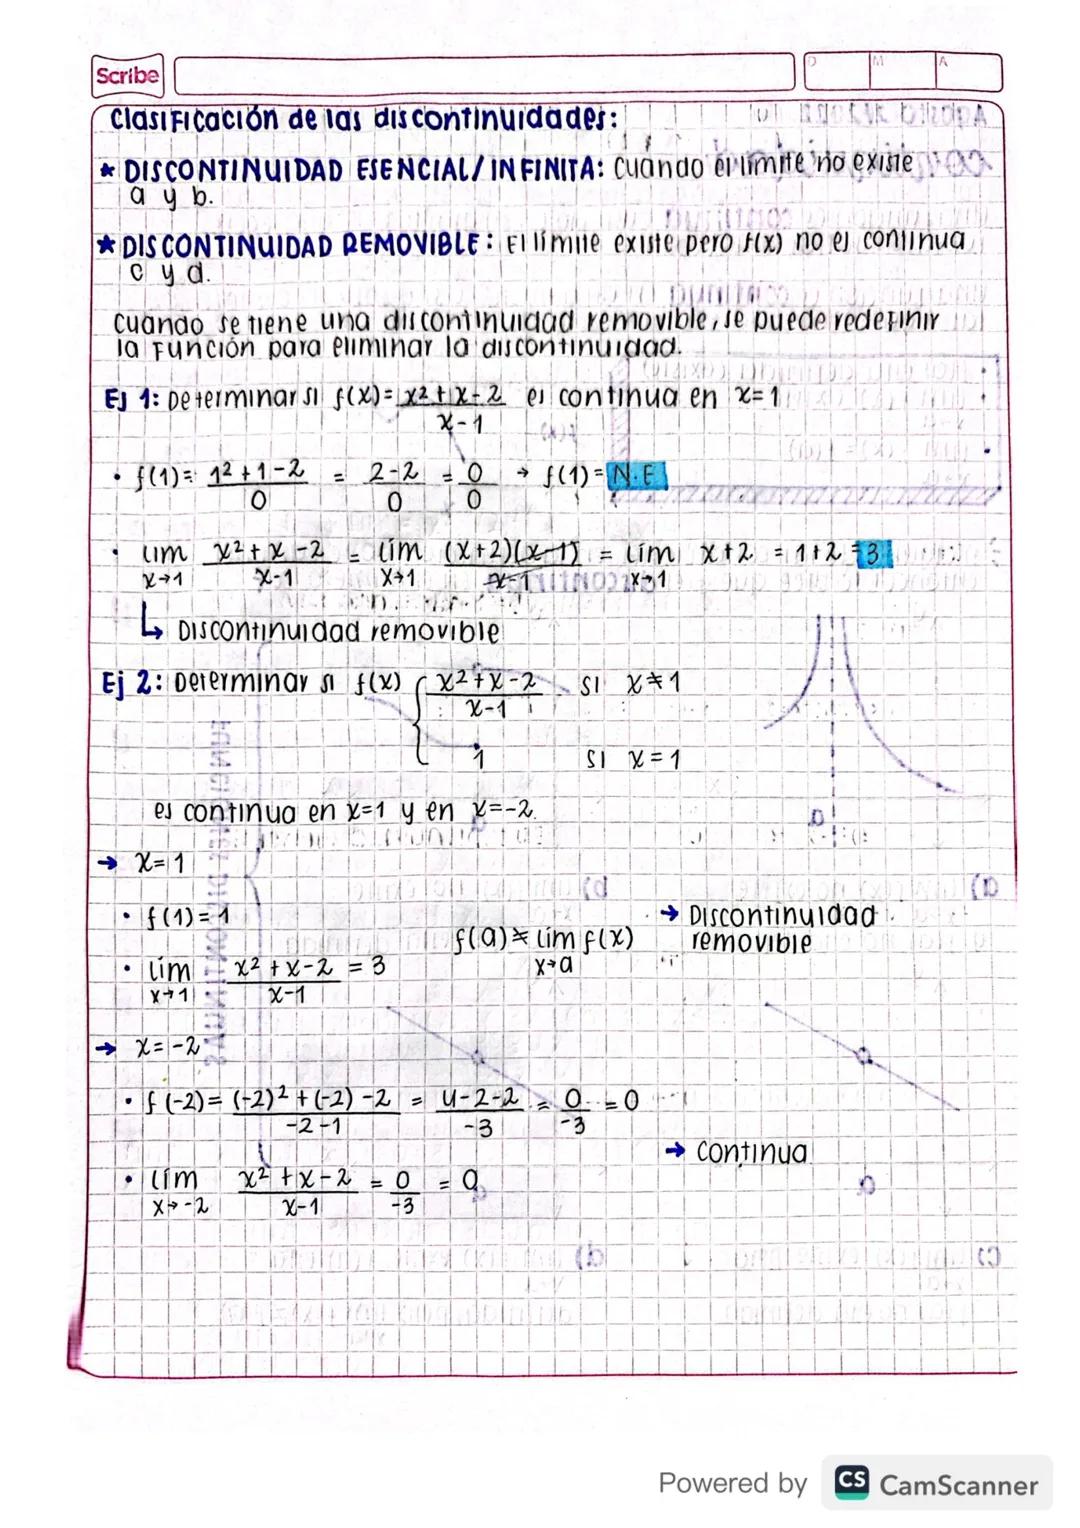 Scribe
D M A
Clasificación de las discontinuidades:
* DISCONTINUIDAD ESENCIAL/INFINITA: Cuando el límite no existe
a y b.
* DISCONTINUIDAD REMOVIBLE: El límite existe pero f(x) no es continua
c y d.
Cuando se tiene una discontinuidad removible, se puede redefinir
la función para eliminar la discontinuidad.
Ej 1: Determinar si f(x) = x²+x-2 / x-1 es continua en x=1
• f(1) = 1²+1-2 / 0 = 2-2 / 0 = 0 / 0 → f(1) = N.E
• lím x→1 x²+x-2 / x-1 = lím x→1 (x+2)(x-1) / x-1 = lím x→1 x+2 = 1+2 = 3
↳ Discontinuidad removible
Ej 2: Determinar si f(x) { x²+x-2 / x-1 si x≠1
1 si x=1
es continua en x=1 y en x=-2.
→ x=1
• f(1) = 1
f(a) ≠ lím x→a f(x) → Discontinuidad removible
• lím x→1 x²+x-2 / x-1 = 3
→ x=-2
• f(-2) = (-2)²+(-2)-2 / -2-1 = 4-2-2 / -3 = 0 / -3 = 0
→ Continua
• lím x→-2 x²+x-2 / x-1 = 0 / -3 = 0
Powered by CS CamScanner